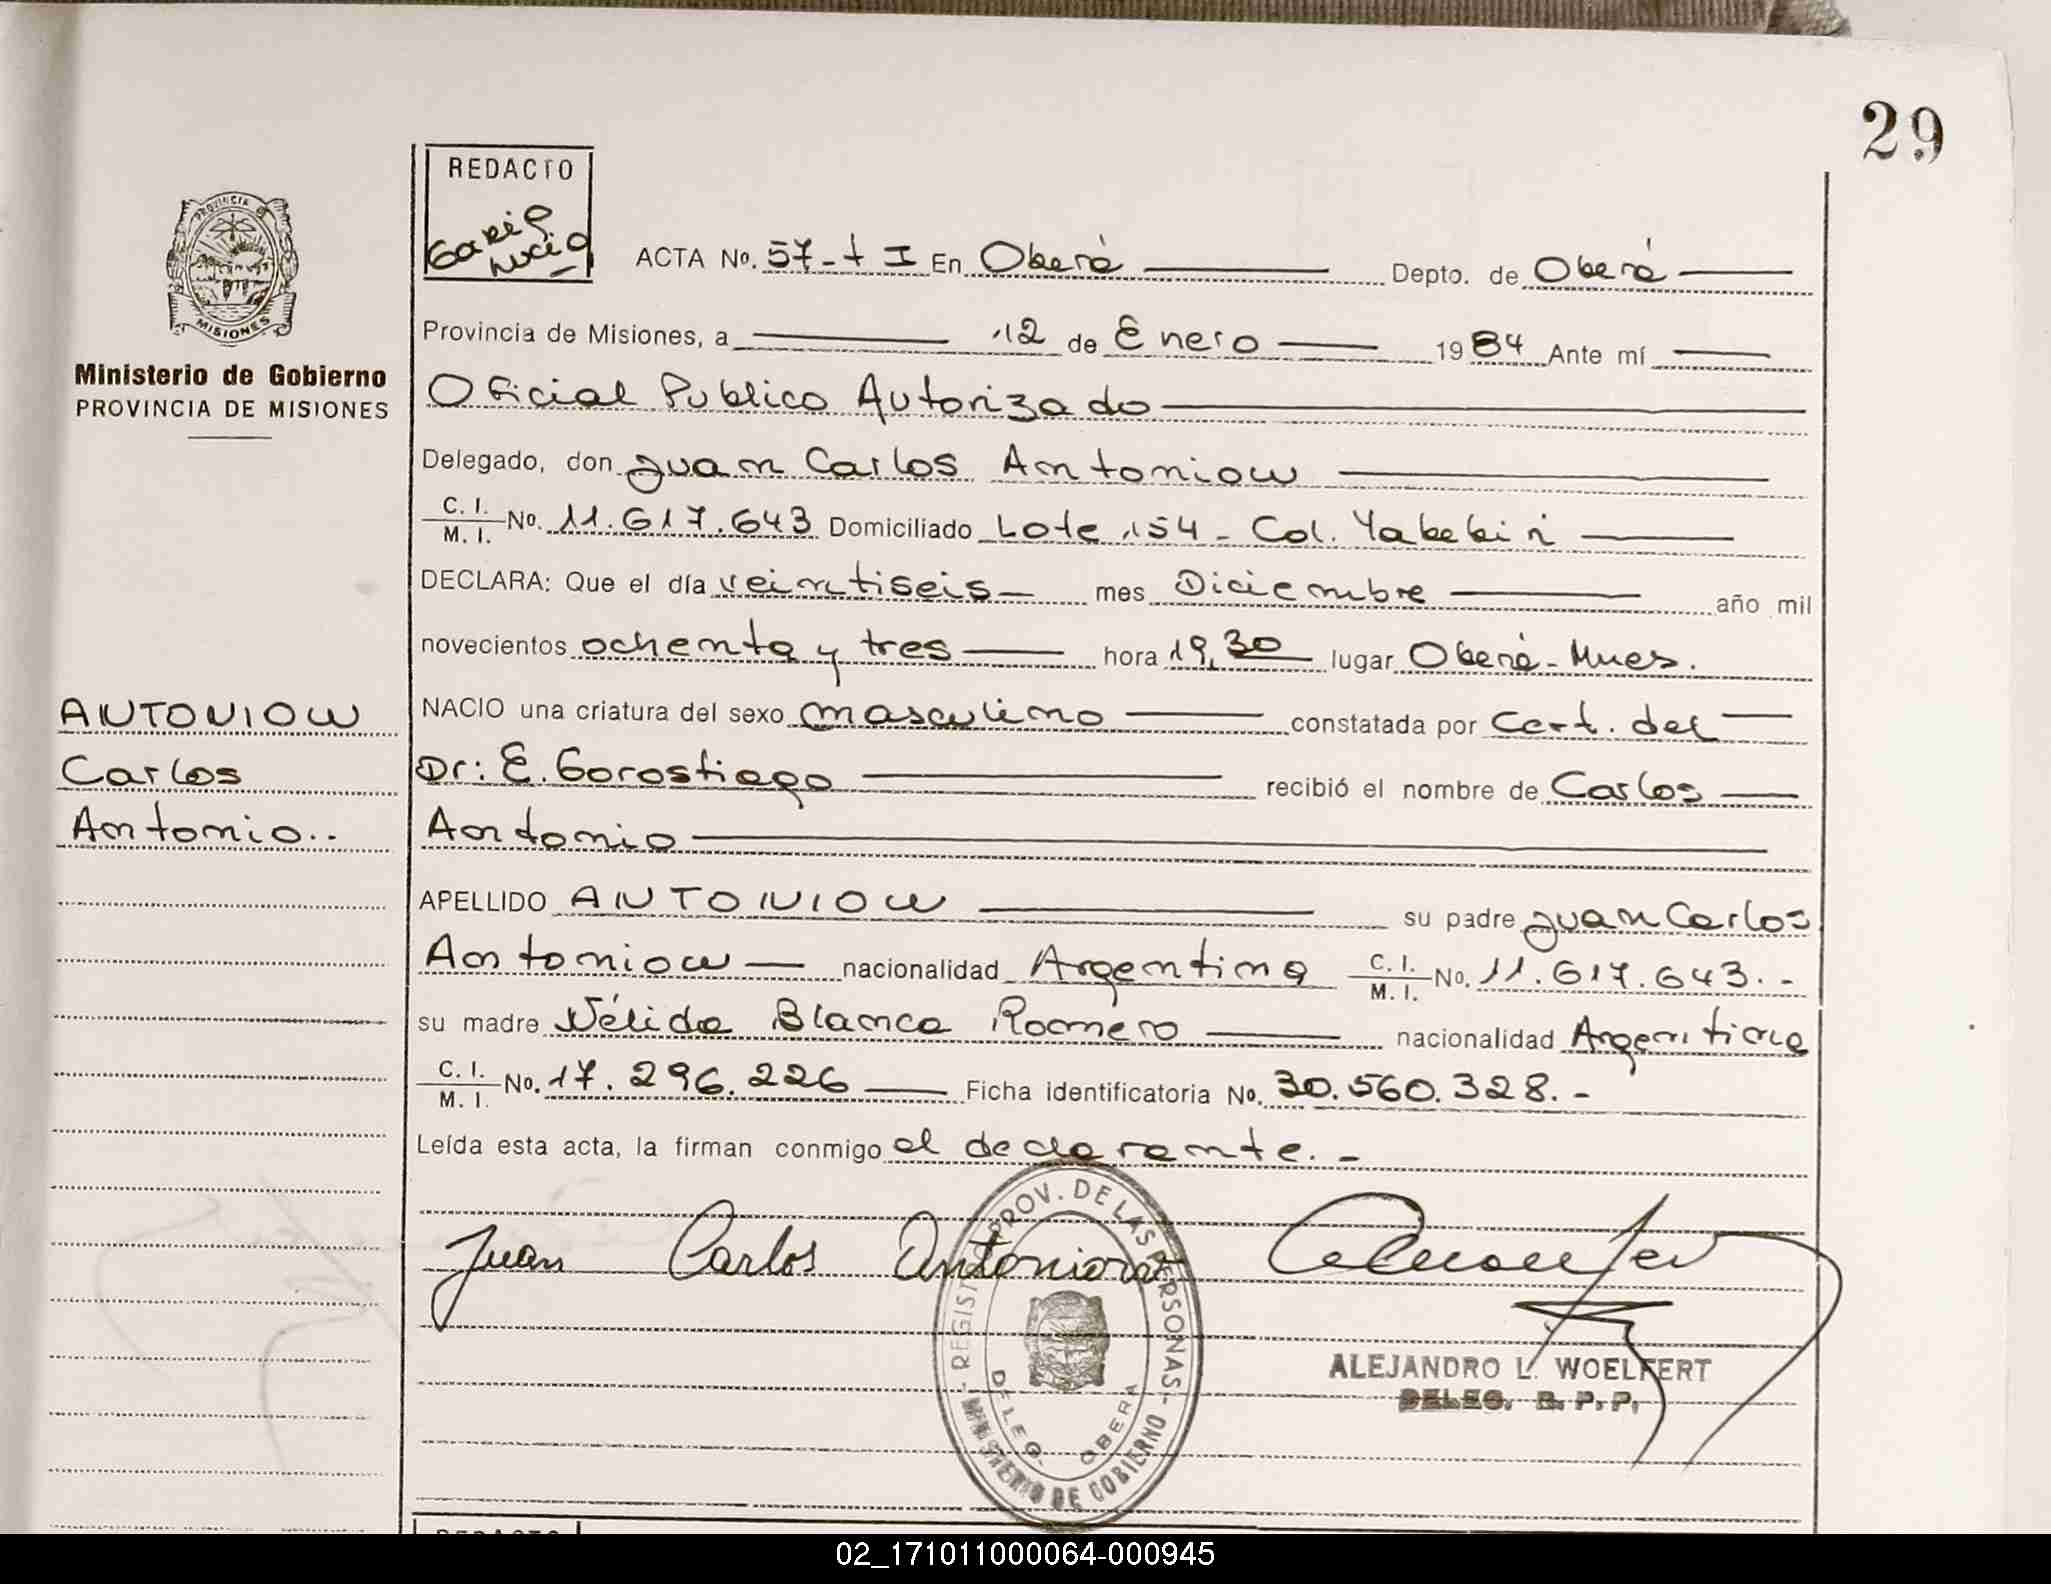 29
REDACTO
Garip
Lucio
ACTA No. 57-t I En Oberá Depto. de Oberá
PROVINCIA DE
MISIONES
Ministerio de Gobierno
PROVINCIA DE MISIONES
Provincia de Misiones, a 12 de Enero 1984 Ante mí
Oficial Publico Autorizado
Delegado, don Juan Carlos Antoniow
C. I. / M. I. No. 11.617.643 Domiciliado Lote 154 - Col. Yabebiri
DECLARA: Que el día veintiseis mes Diciembre año mil
novecientos ochenta y tres hora 19,30 lugar Oberá - Mnes.
ANTONIOW
Carlos
Antonio..
NACIO una criatura del sexo masculino constatada por Cert. del
Dr: E. Gorostiago recibió el nombre de Carlos
Antonio
APELLIDO ANTONIOW su padre Juan Carlos
Antoniow nacionalidad Argentina C. I. / M. I. No. 11.617.643.-
su madre Nélida Blanca Romero nacionalidad Argentina
C. I. / M. I. No. 17.296.226 Ficha identificatoria No. 30.560.328.-
Leída esta acta, la firman conmigo el declarante.-
Juan Carlos Antoniow
REGIST PROV. DE LAS PERSONAS
MINISTERIO DE GOBIERNO
DELEG. OBERA
ALEJANDRO L. WOELFERT
DELEG. R. P. P.
REDACTO
02_171011000064-000945